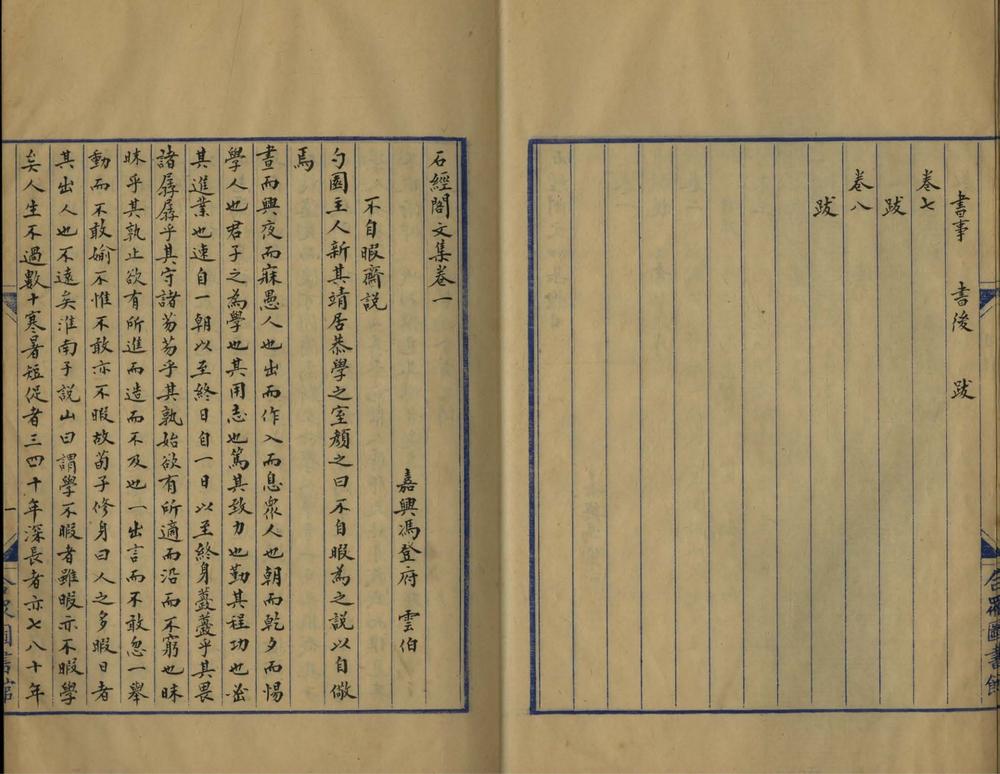 書事　書後　跋
卷七
跋
卷八
跋
石經閣文集卷一
嘉興馮登府　雲伯
不自暇齋說
勺園主人新其靖居恭學之室顏之曰不自暇為之說以自儆
焉
晝而興夜而寐愚人也出而作入而息眾人也朝而乾夕而惕
學人也君子之為學也其用志也篤其致力也勤其程功也密
其進業也速自一朝以至終日自一日以至終身藎藎乎其畏
諸孱孱乎其守諸芴芴乎其孰始欲有所適而沿而不窮也昧
昧乎其孰止欲有所進而造而不及也一出言而不敢忽一舉
動而不敢媮不惟不敢亦不暇故荀子修身曰人之多暇日者
其出人也不遠矣淮南子說山曰謂學不暇者雖暇亦不暇學
矣人生不過數十寒暑短促者三四十年深長者亦七八十年
一
合眾圖書館
合眾圖書館